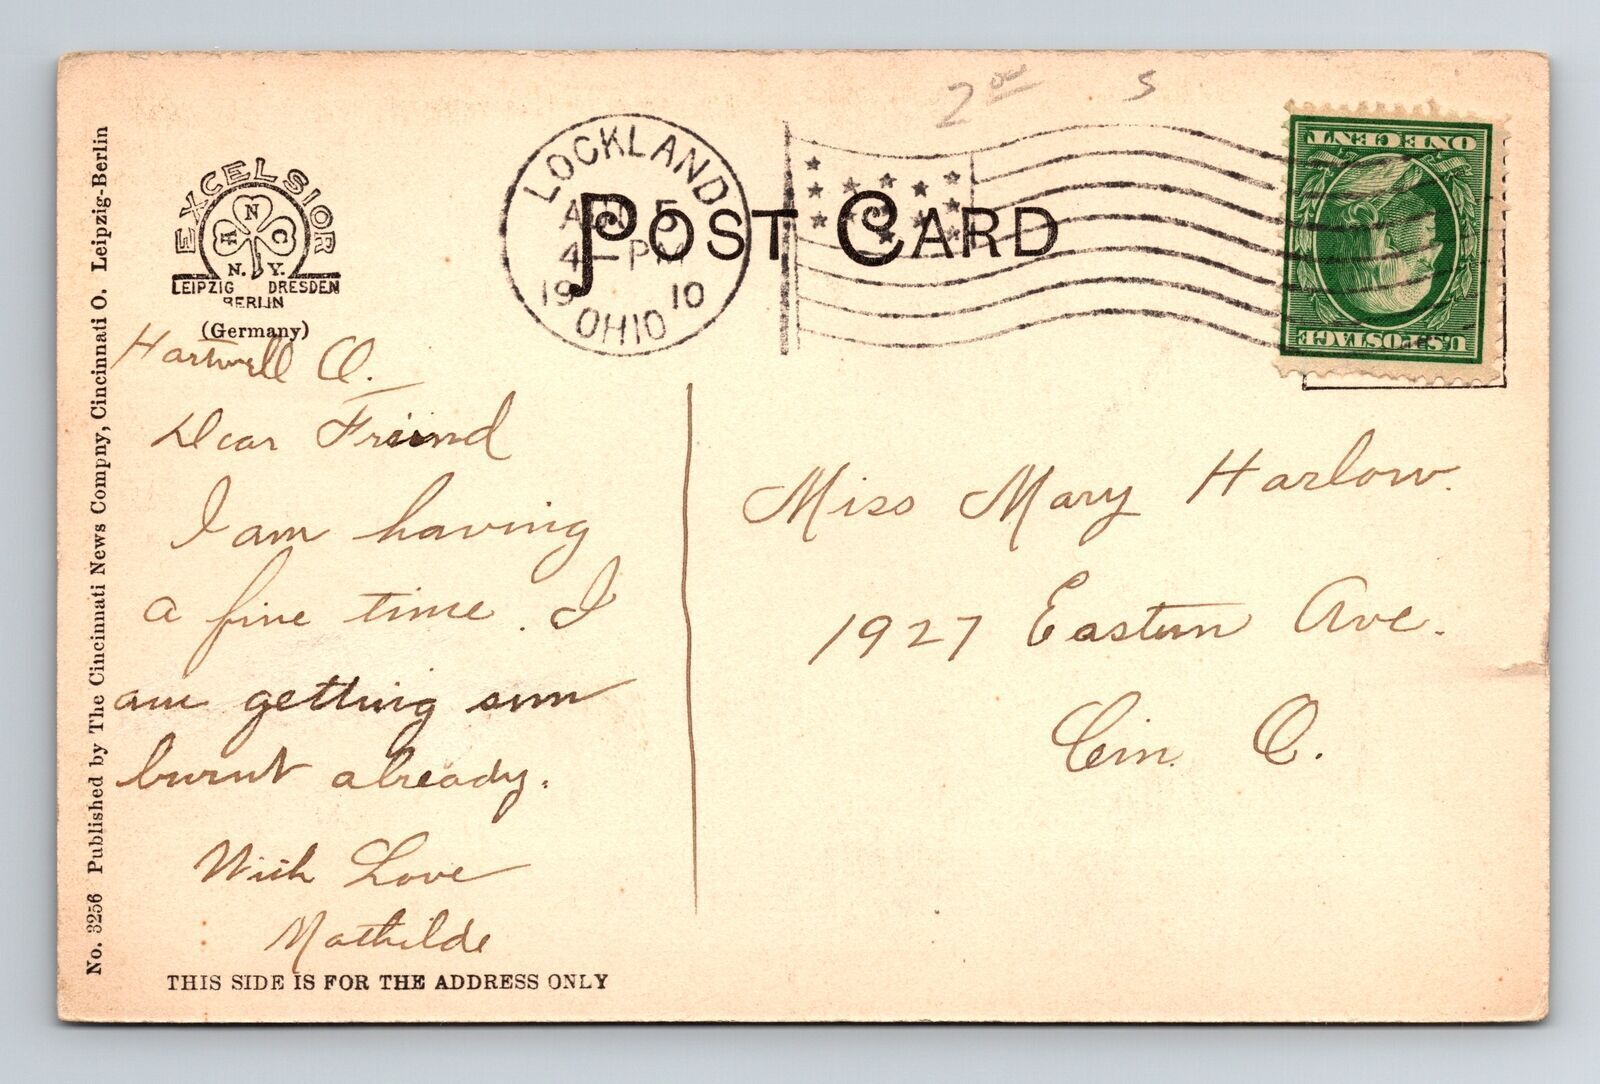 2 00
S
EXCELSIOR
A N C
N. Y.
LEIPZIG DRESDEN
BERLIN
(Germany)
LOCKLAND
5
4 - PM
1910
OHIO
POST CARD
ONE CENT
U.S. POSTAGE
Hartwell O.
Dear Friend
I am having
a fine time. I
am getting sun
burnt already.
With Love
Mathilde
Miss Mary Harlow.
1927 Eastern Ave.
Cin. O.
THIS SIDE IS FOR THE ADDRESS ONLY
No. 3256 Published by The Cincinnati News Compny, Cincinnati O. Leipzig-Berlin